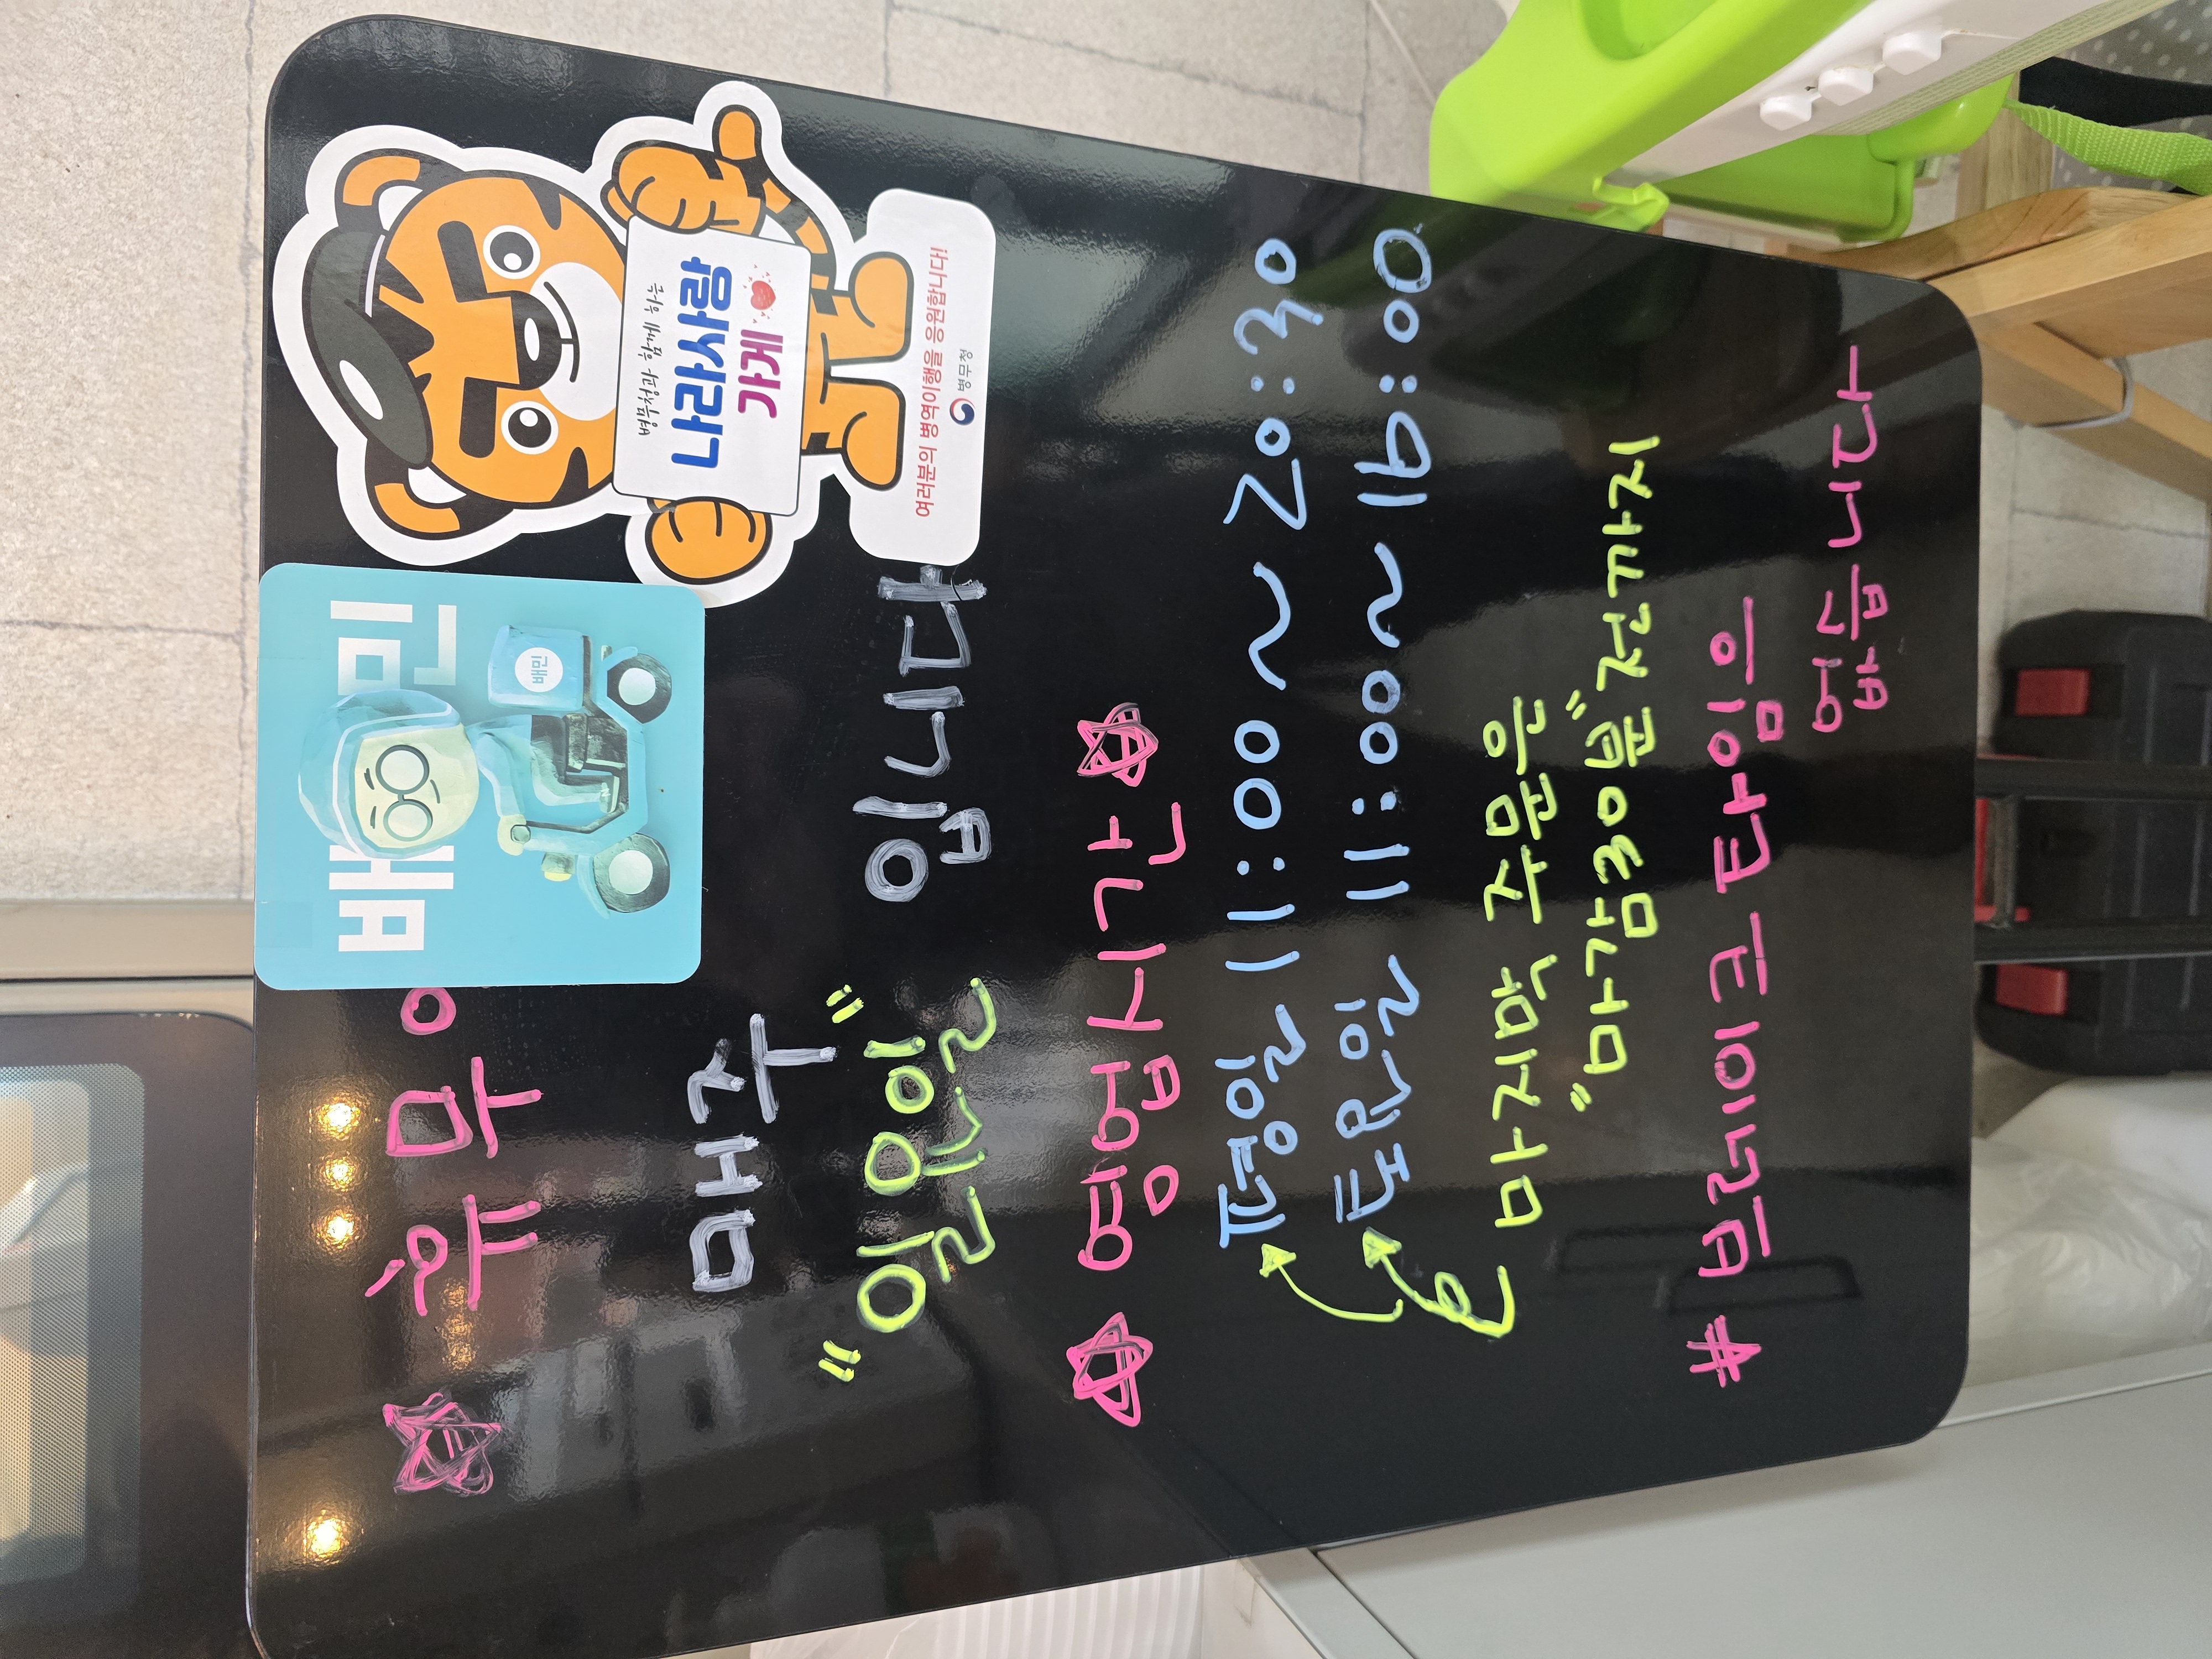 ☆ 휴무
배민
배민
병무청과 함께 하는
나라사랑
가게
여러분의 병역이행을 응원합니다!
병무청
매주
"일요일" 입니다
☆ 영업시간 ☆
평일 11:00 ~ 20:30
토요일 11:00 ~ 16:00
마지막 주문은
"마감30분"전까지
# 브레이크 타임은
없습니다